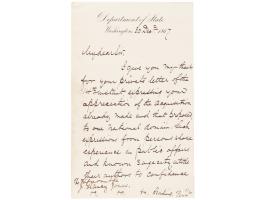 Department of State
Washington, 20 Dec 1867
My dear Sir,
I give you my thanks
for your private letter of the
Instant expressing your
appreciation of the acquisition
already made and that proposed
to our national domain. Such
expression from persons whose
experience in public affairs
and known sagacity entitle
their authors to confidence
J. Glancy Jones